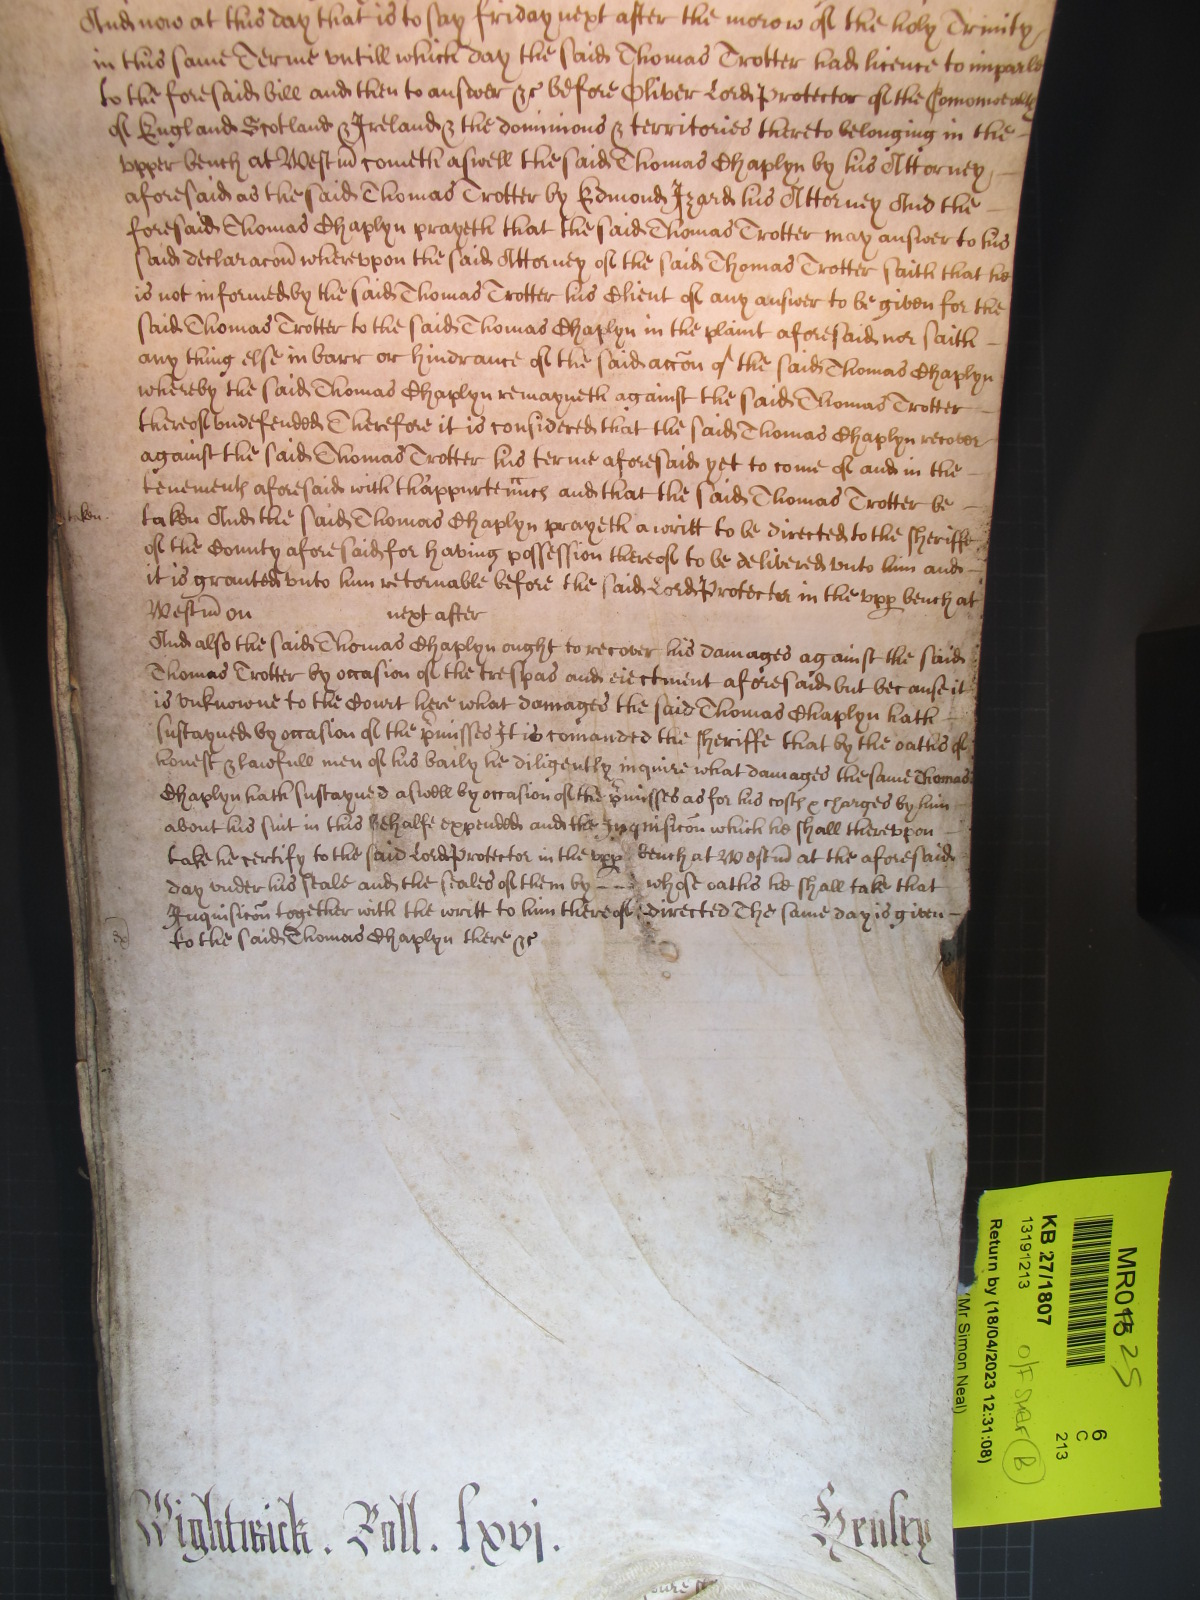 And now at this day that is to say Friday next after the morow of the holy Trinity
in this same Terme vntill which day the said Thomas Trotter had licence to imparle
to the foresaid bill and then to answer &c before Oliver Lord Protector of the Comonwealth
of England Scotland & Ireland & the dominions & territories thereto belonging in the
vpper bench at Westm̄ cometh aswell the said Thomas Chaplyn by his Attorney
aforesaid as the said Thomas Trotter by Edmond Izard his Attorney And the
foresaid Thomas Chaplyn prayeth that the said Thomas Trotter may answer to his
said declaracōn wherevpon the said Attorney of the said Thomas Trotter saith that he
is not informed by the said Thomas Trotter his Client of any answer to be given for the
said Thomas Trotter to the said Thomas Chaplyn in the plaint aforesaid nor saith
any thing else in barr or hindrance of the said accōn of the said Thomas Chaplyn
whereby the said Thomas Chaplyn remayneth against the said Thomas Trotter
thereof vndefended Therefore it is considered that the said Thomas Chaplyn recover
against the said Thomas Trotter his terme aforesaid yet to come of and in the
tenements aforesaid with thappurtenn̄cs and that the said Thomas Trotter be
taken.
taken And the said Thomas Chaplyn prayeth a writt to be directed to the Sheriffe
of the County aforesaid for having possession thereof to be delivered vnto him and
it is granted vnto him retornable before the said Lord Protector in the vpp bench at
Westm̄ on next after
And also the said Thomas Chaplyn ought to recover his damages against the said
Thomas Trotter by occasion of the trespas and eiectment aforesaid but because it
is vnknowne to the Court here what damages the said Thomas Chaplyn hath
sustayned by occasion of the p̄misses It is comanded the Sheriffe that by the oaths of
honest & lawfull men of his baily he diligently inquire what damages the same Thomas
Chaplyn hath sustayned aswell by occasion of the p̄misses as for his costs & charges by him
about his suit in this behalfe expended and the Inquisicōn which he shall therevpon
take he certify to the said Lord Protector in the vpp bench at Westm̄ at the aforesaid
day vnder his seale and the seales of them by whose oaths he shall take that
Inquisicōn together with the writt to him thereof directed The same day is given
to the said Thomas Chaplyn there &c
Wightwick. Roll. lxvi.
Henley
MR01 25
KB 27/1807
13191213
Return by (18/04/2023 12:31:08)
(Mr Simon Neal)
6
C
213
B